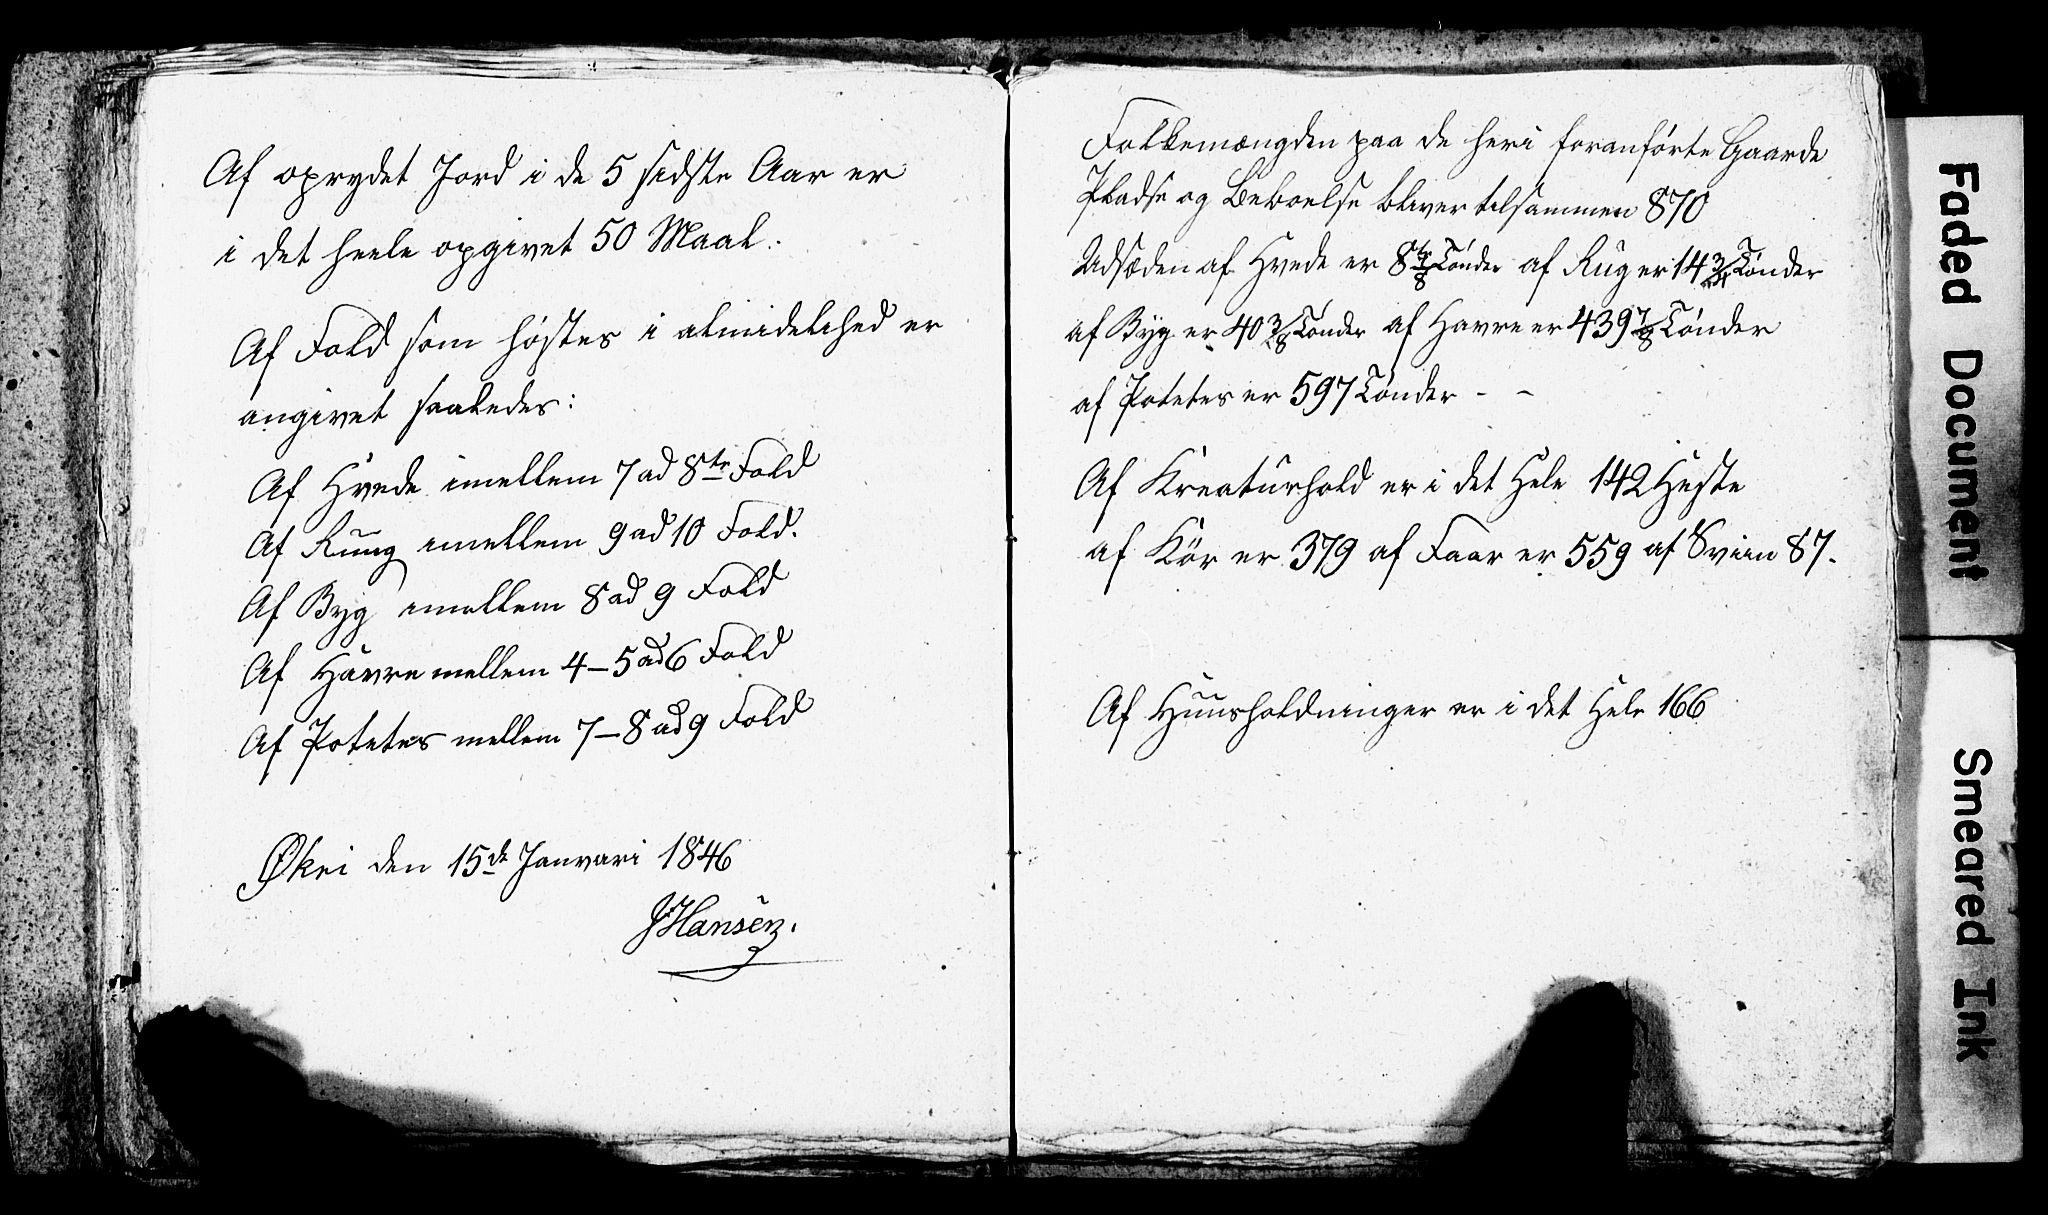 Af oprydet Jord i de 5 sidste Aar er
i det heele opgivet 50 Maal.
Af Fold som høstes i almidelihed er
angivet saaledes:
Af Hvede imellem 7 ad 8te Fold
Af Ruug imellem 9 ad 10 Fold.
Af Byg imellem 8 ad 9 Fold
Af Havre mellem 4–5 ad 6 Fold
Af Potetes mellem 7–8 ad 9 Fold
Økri den 15de Januari 1846
JHansen.
Folkemængden paa de heri foranførte Gaarde
Pladse og Beboelse bliver tilsammen 870
Udsæden af Hvede er 8 Tønder af Rug er 14 3/4 Tønder
af Byg er 40 3/8 Tønder af Havre er 439 7/8 Tønder
af Potetes er 597 Tønder - -
Af Kreaturhold er i det Hele 142 Heste
af Kör er 379 af Faar er 559 af Sviin 87.
Af Huusholdninger er i det Hele 166
Faded Document
Smeared Ink